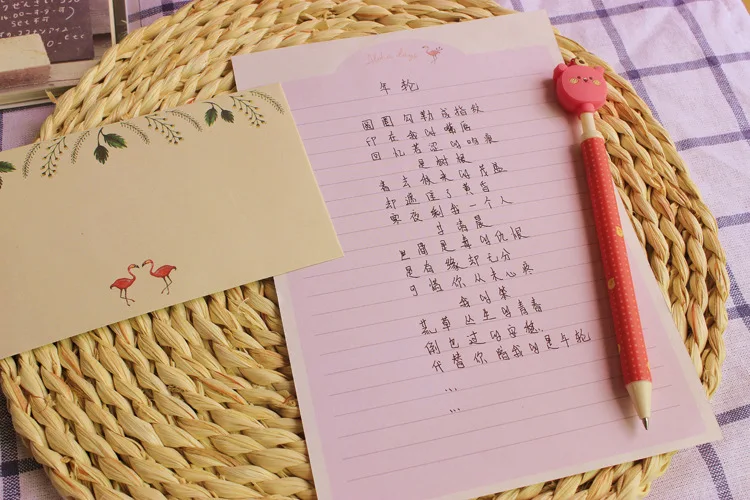 年轮
圆圈勾勒成指纹
印在我的嘴唇
回忆苦涩的吻痕
是树根
春去秋来的茂盛
却遮住了黄昏
寒夜剩我一个人
等清晨
世间最毒的仇恨
是有缘却无分
可惜你从未心疼
我的笨
荒草丛生的青春
倒也过的安稳..
代替你陪我的是年轮
...
...